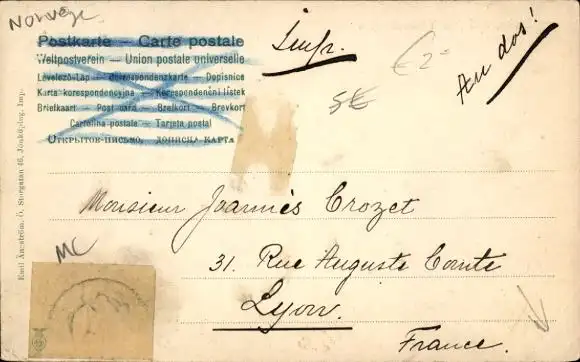 Norvège
Postkarte — Carte postale
Weltpostverein — Union postale universelle
Levelező-Lap — Correspondenzkarte — Dopisnice
Karta korespondencyjna — Korespondenční lístek
Briefkaart — Post card — Brefkort — Brevkort
Cartolina postale — Tarjeta postal
Открытое письмо, дописна карта
Impr.
€ 2-
5€
Au dos!
Monsieur Joannès Crozet
31. Rue Auguste Comte
Lyon.
France.
MC
Ö. Storgatan 46, Jönköping. Imp.